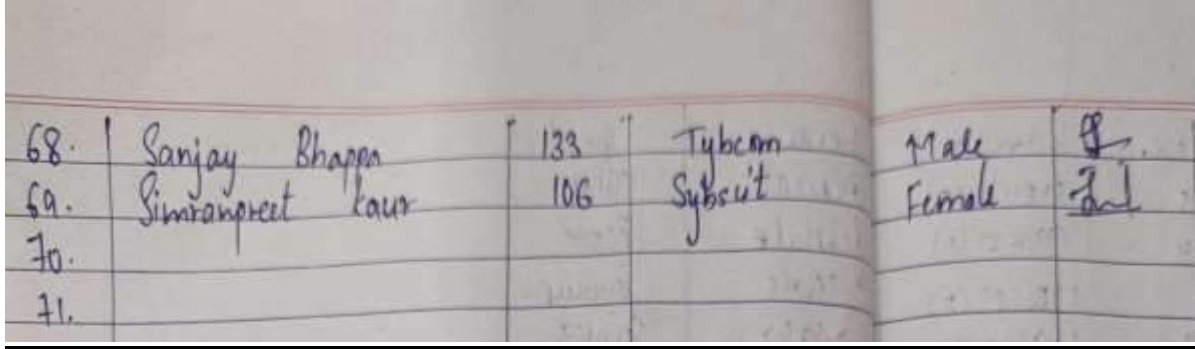 68. Sanjay Bhappa 133 Tybcom Male
69. Simranpreet kaur 106 Sybscit Female
70.
71.